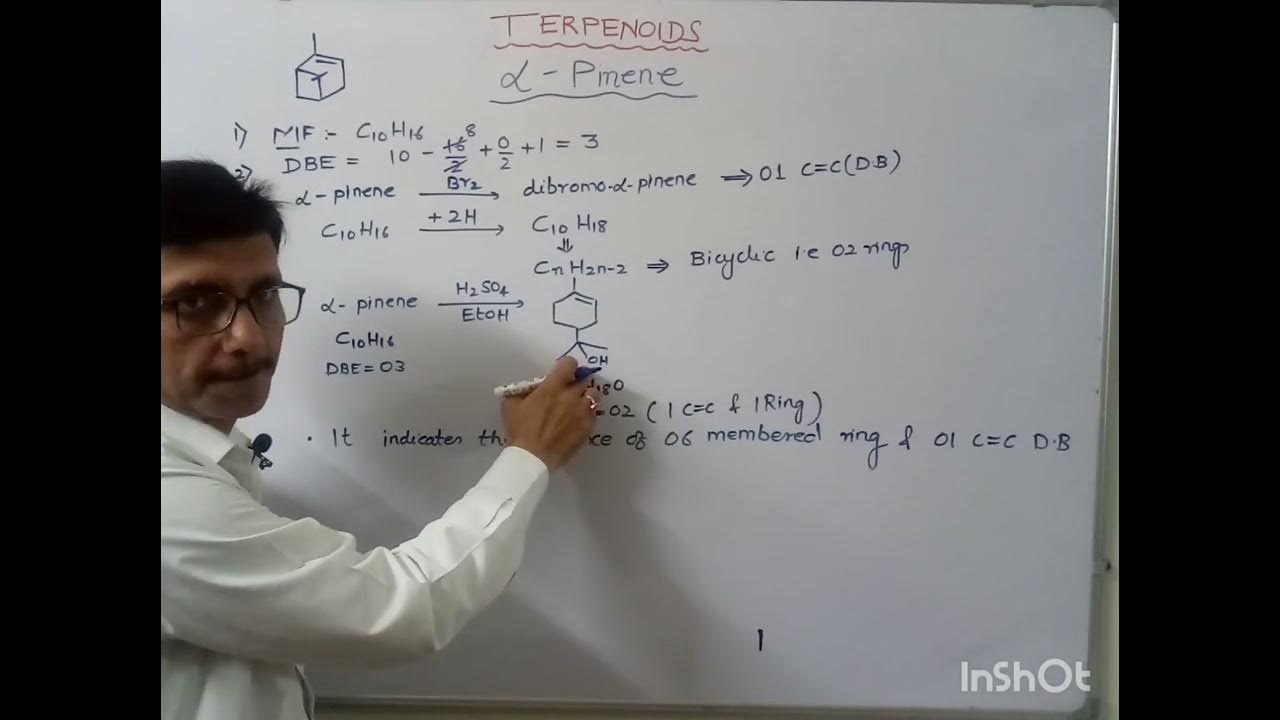 TERPENOIDS
α - Pinene
1) MF :- C10H16
2) DBE = 10 - 16/2 8 + 0/2 + 1 = 3
α-pinene Br2 dibromo-α-pinene ⟹ 01 C=C (D.B)
C10H16 +2H C10H18
⇓
CnH2n-2 ⟹ Bicyclic i.e 02 rings
α-pinene H2SO4 EtOH
C10H16
DBE = 03
OH
18O
=02 (1 C=C & 1 Ring)
• It indicates of 06 membered ring & 01 C=C D.B
1
InShOt